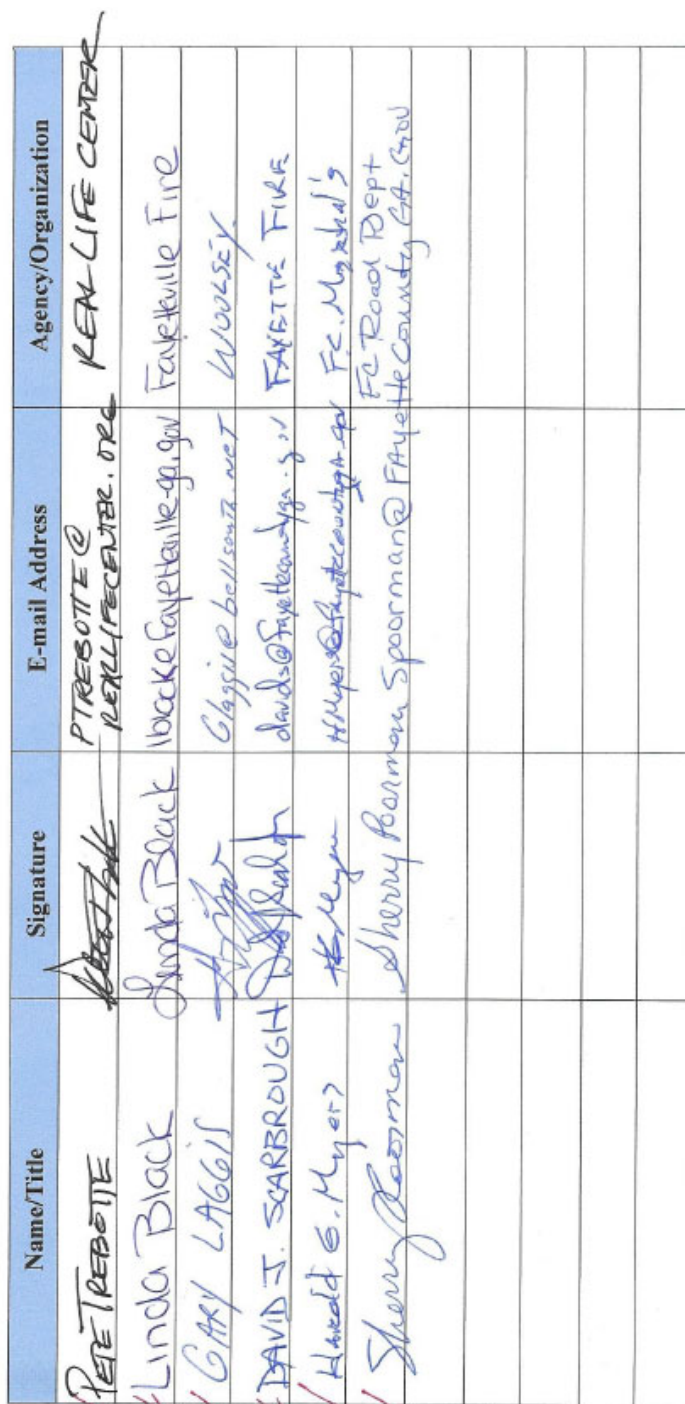 Name/Title Signature E-mail Address Agency/Organization
PETE TREBOTTE PTREBOTTE@ REAL LIFE CENTER
REALLIFECENTER.ORG
Linda Black Linda Black lblack@fayetteville-ga.gov Fayetteville Fire
GARY LAGGIS Glaggis@bellsouth.net WOOLSEY
DAVID J. SCARBROUGH davids@fayettecountyga.gov FAYETTE FIRE
Harold G. Myers HMyers@fayettecountyga.gov F.C. Marshal's
Sherry Poorman Sherry Poorman Spoorman@FAyetteCountyGA.Gov FC Road Dept